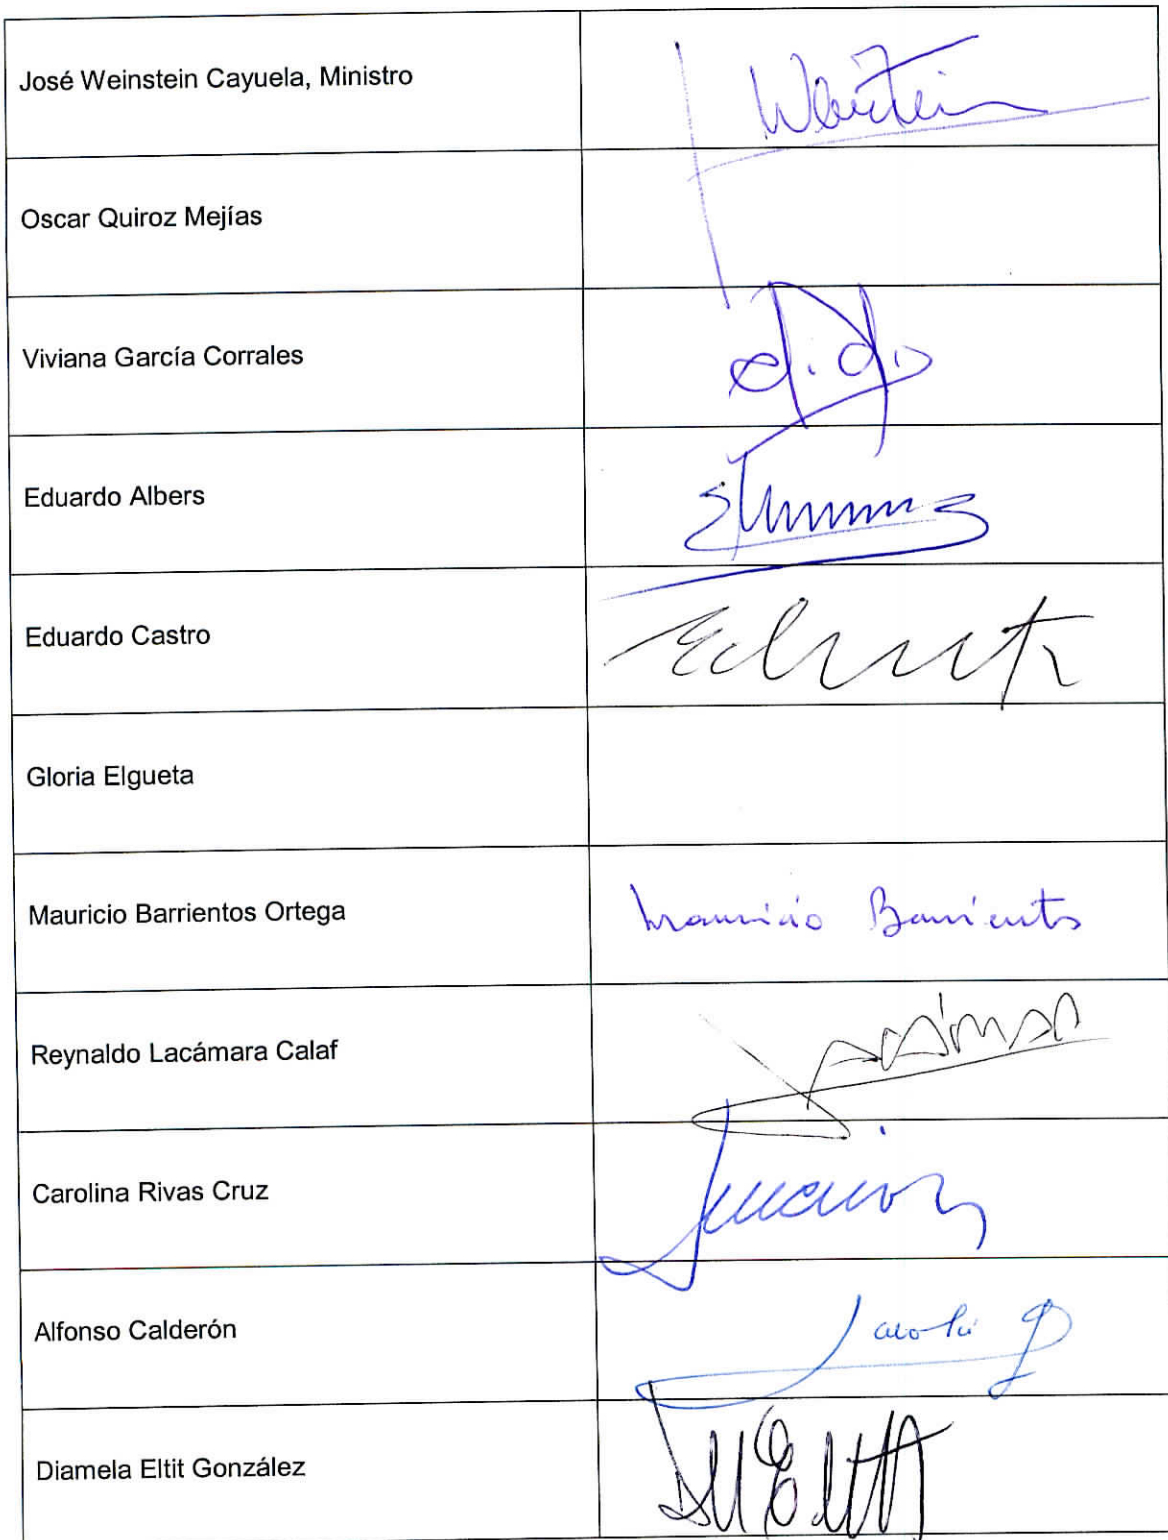 José Weinstein Cayuela, Ministro
Weinstein
Oscar Quiroz Mejías
Viviana García Corrales
Eduardo Albers
Eduardo Castro
Gloria Elgueta
Mauricio Barrientos Ortega
Mauricio Barrientos
Reynaldo Lacámara Calaf
Carolina Rivas Cruz
Alfonso Calderón
Diamela Eltit González